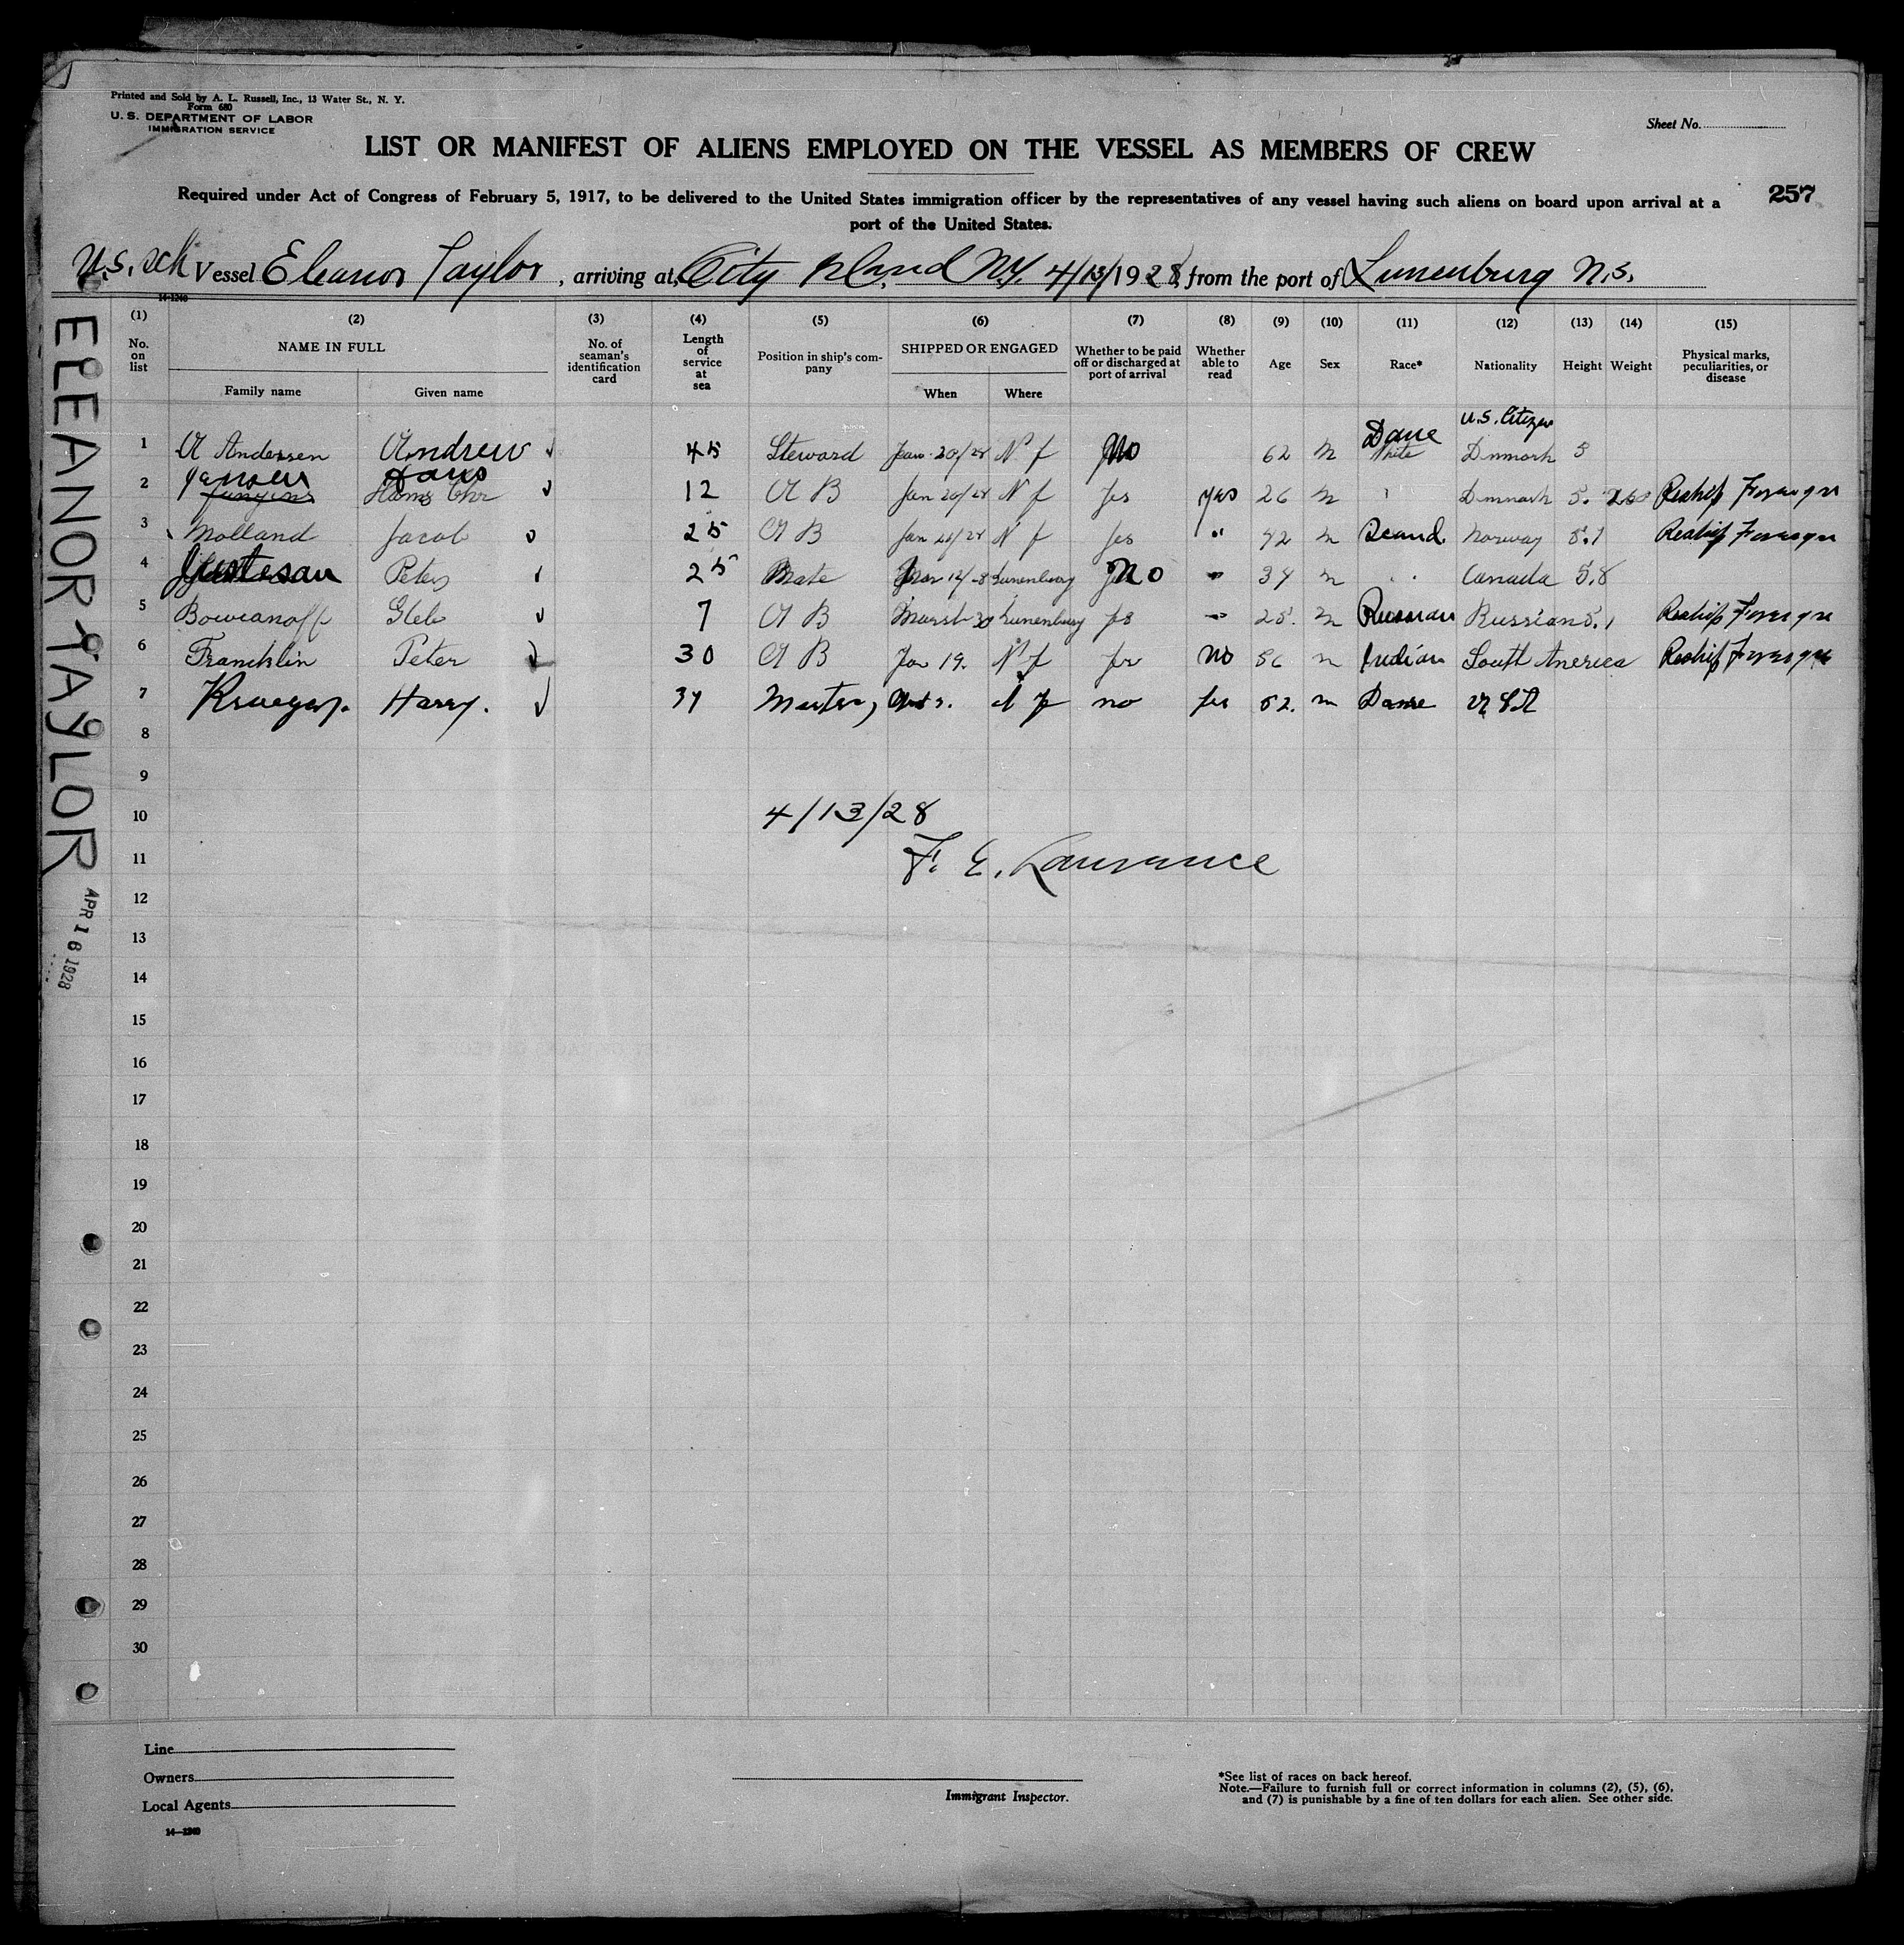 Printed and Sold by A. L. Russell, Inc., 13 Water St., N. Y.
Form 680
U. S. DEPARTMENT OF LABOR
IMMIGRATION SERVICE
Sheet No.
LIST OR MANIFEST OF ALIENS EMPLOYED ON THE VESSEL AS MEMBERS OF CREW
Required under Act of Congress of February 5, 1917, to be delivered to the United States immigration officer by the representatives of any vessel having such aliens on board upon arrival at a
port of the United States.
257
U.S. sch Vessel Eleanor Taylor, arriving at, City Island N.Y. 4/13/1928, from the port of Lunenburg N.S.
14-1240
(1) (2) (3) (4) (5) (6) (7) (8) (9) (10) (11) (12) (13) (14) (15)
No. on list NAME IN FULL No. of seaman's identification card Length of service at sea Position in ship's company SHIPPED OR ENGAGED Whether to be paid off or discharged at port of arrival Whether able to read Age Sex Race* Nationality Height Weight Physical marks, peculiarities, or disease
Family name Given name When Where
U.S. Citizen
1 A Andersen Andrew 45 Steward Jan 20/28 N f No 62 m Dane Denmark 5
Jansen Hans
2 Hans Chr 12 A B Jan 20/28 N f yes yes 26 m " Denmark 5. Reship Foreign
3 Molland Jacob 25 A B Jan 26/28 N f yes " 42 m Scand. Norway 5.7 Reship Foreign
4 Justesan Peter 25 Mate Mar 12/-8 Lunenburg No " 34 m " Canada 5.8
5 Boweanoff Gleb 7 A B March 30 Lunenburg yes " 25. m Russian Russian 5. Reship Foreign
6 Francklin Peter 30 A B Jan 19. N f yes No 56 m Indian South America Reship Foreign
7 Krueger. Harry. 37 Master, N f no yes 52. m Dane
8
9
10
4/13/28
11
F. E. Lawrance
12
13
14
15
16
17
18
19
20
21
22
23
24
25
26
27
28
29
30
ELEANOR TAYLOR
APR 16 1928
Line
Owners
Local Agents
14—1240
Immigrant Inspector.
*See list of races on back hereof.
Note.—Failure to furnish full or correct information in columns (2), (5), (6),
and (7) is punishable by a fine of ten dollars for each alien. See other side.